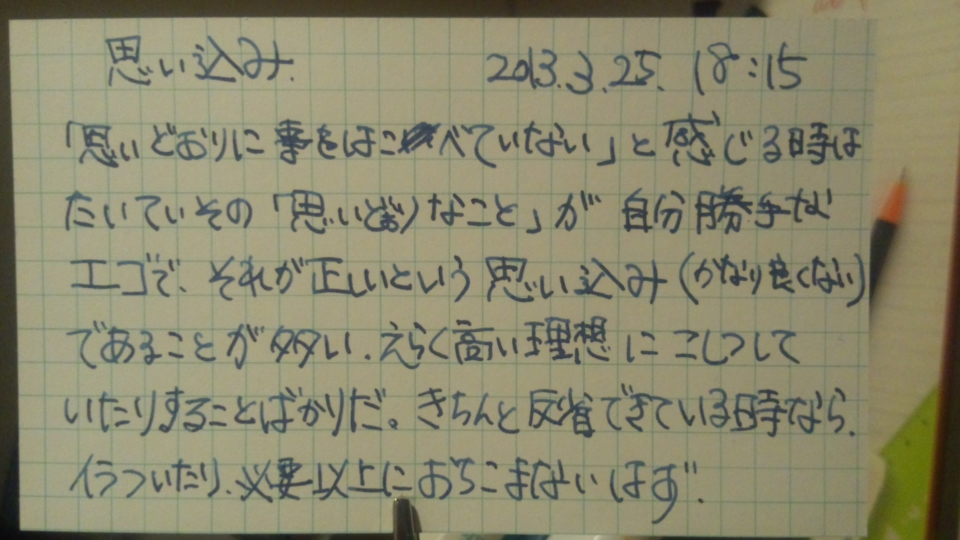 思い込み. 2013.3.25. 18:15
「思いどおりに事をはこべていない」と感じる時は
たいていその「思いどおりなこと」が自分勝手な
エゴで、それが正しいという思い込み(かなり良くない)
であることが多い.えらく高い理想にこしつして
いたりすることばかりだ。きちんと反省できている時なら、
イラついたり、必要以上におちこまないはず.